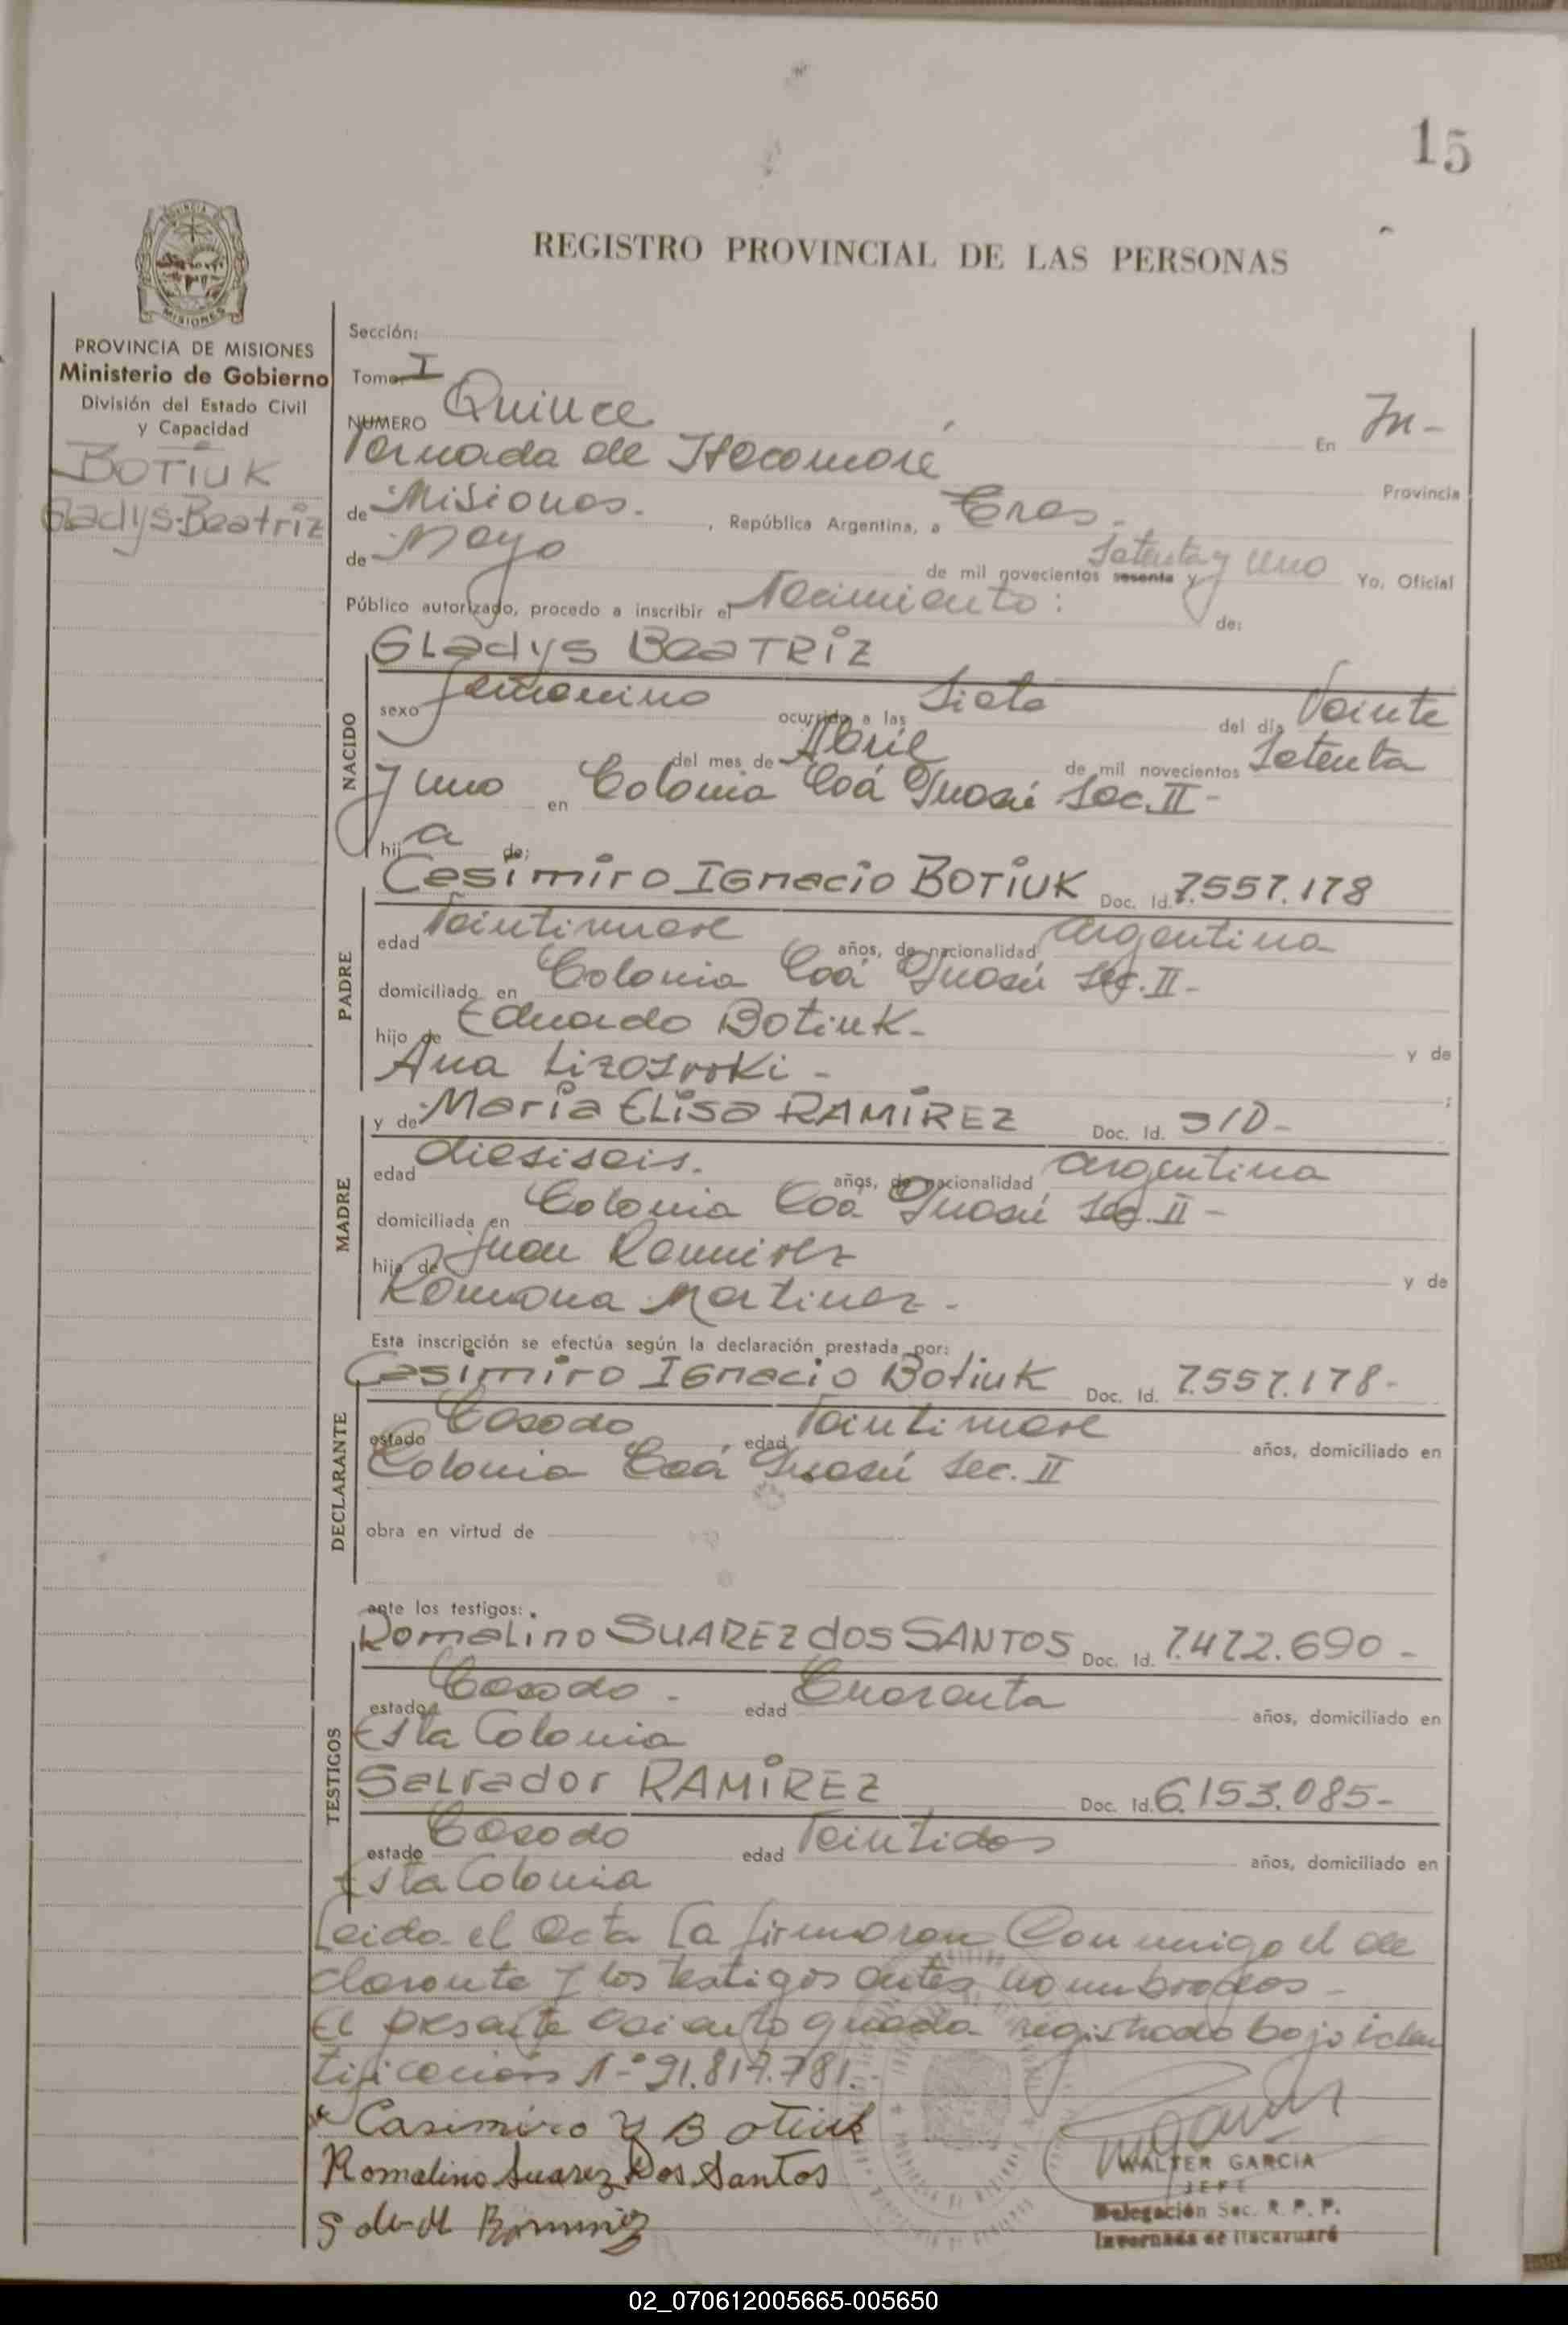 15
PROVINCIA DE
MISIONES
REGISTRO PROVINCIAL DE LAS PERSONAS
PROVINCIA DE MISIONES
Ministerio de Gobierno
División del Estado Civil
y Capacidad
BOTIUK
Gladys-Beatriz
Sección:
Tomo: I
NUMERO Quince En In-
vernada de Itacaruaré Provincia
de Misiones. , República Argentina, a Tres.
de Mayo de mil novecientos sesenta y Setenta y Uno Yo, Oficial
Público autorizado, procedo a inscribir el Nacimiento: de:
NACIDO
GLadys BeaTRiZ
sexo femenino ocurrido a las Siete del día Veinte
del mes de Abril de mil novecientos Setenta
y uno en Colonia Caá Guasú Sec. II-
hij a de:
PADRE
Casimiro IGnacio BOTIUK Doc. Id. 7.557.178
edad Veintinueve años, de nacionalidad Argentina
domiciliado en Colonia Caá Guasú Sec. II-
hijo de Eduardo Botiuk- y de
Ana -
MADRE
y de María ELisa RAMÍREZ Doc. Id. S/D-
edad diesiseis. años, de nacionalidad Argentina
domiciliada en Colonia Caá Guasú Sec. II-
hija de Juan Ramirez y de
Romona Martinez-
Esta inscripción se efectúa según la declaración prestada por:
DECLARANTE
Casimiro IGnacio Botiuk Doc. Id. 7.557.178-
estado Casado edad Veintinueve años, domiciliado en
Colonia Caá Guasú Sec. II
obra en virtud de
ante los testigos:
TESTIGOS
RomaLino SUAREZ dOS SANTOS Doc. Id. 7.472.690-
estado Casado- edad Cuarenta años, domiciliado en
Esta Colonia
SaLvador RAMÍREZ Doc. Id. 6.153.085-
estado Casado edad Veintidos años, domiciliado en
Esta Colonia
Leida el Acta la firmaron Conmigo el de
clarante y los testigos antes nombrados-
El presente asiento queda registrado bajo iden
tificación Nº 91.817.781.-
Casimiro Y Botiuk
Romalino Suarez Dos Santos
WALTER GARCIA
JEFE
Delegación Sec. R. P. P.
Invernada de Itacaruaré
02_070612005665-005650